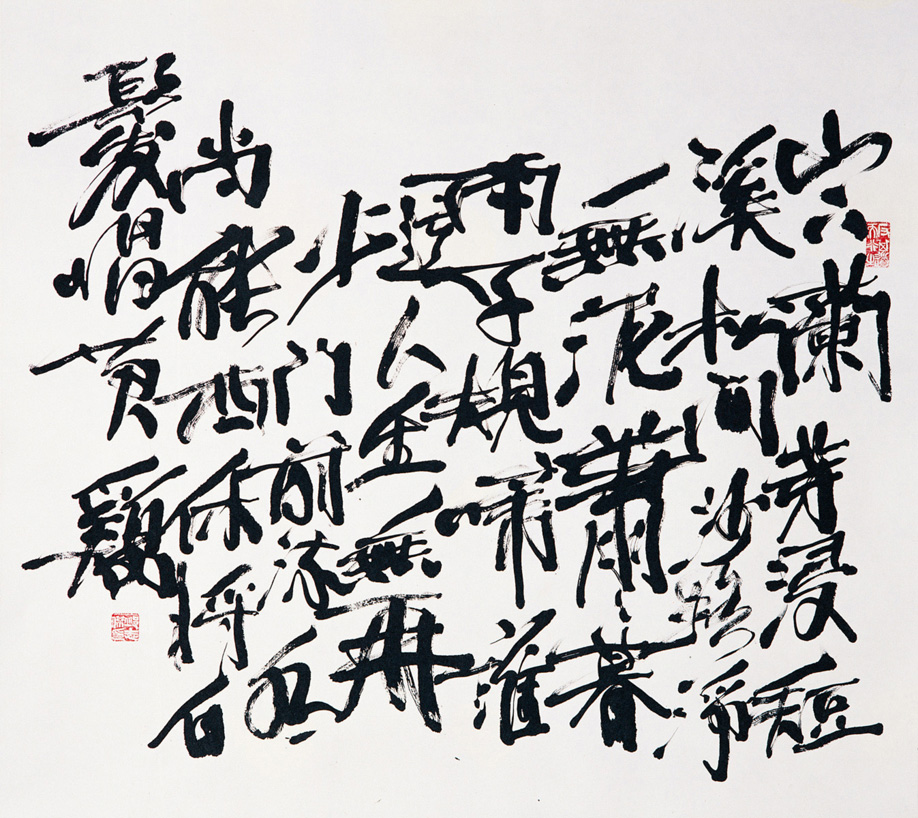 山下蘭芽浸短
溪松間沙路淨
無泥蕭〻暮
雨子規啼誰
道人生無再
少門前流水
尚能西休將白
髮唱黄鷄